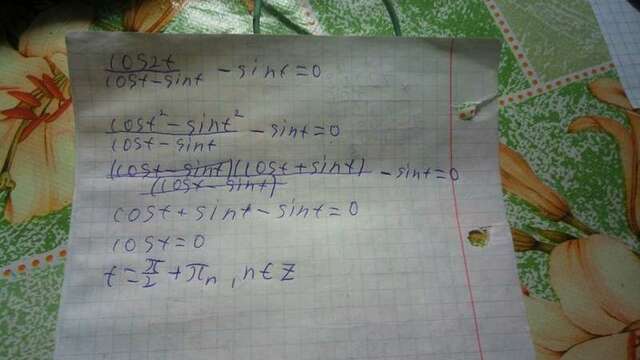 cos2t/(cost-sint) - sint = 0
(cost² - sint²)/(cost - sint) - sint = 0
(cost - sint)(cost + sint)/(cost - sint) - sint = 0
cost + sint - sint = 0
cost = 0
t = π/2 + πn, n ∈ Z